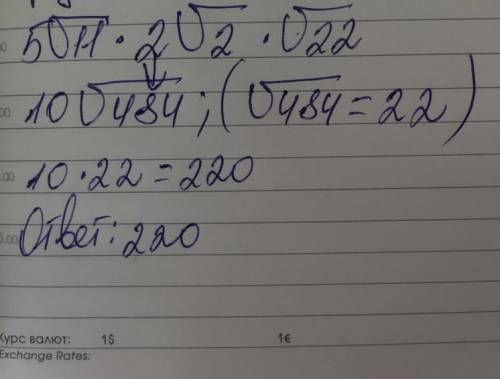 5√11 · 2√2 · √22
10√484; (√484 = 22)
10 · 22 = 220
Ответ: 220
Курс валют: 1$ 1€
Exchange Rates: